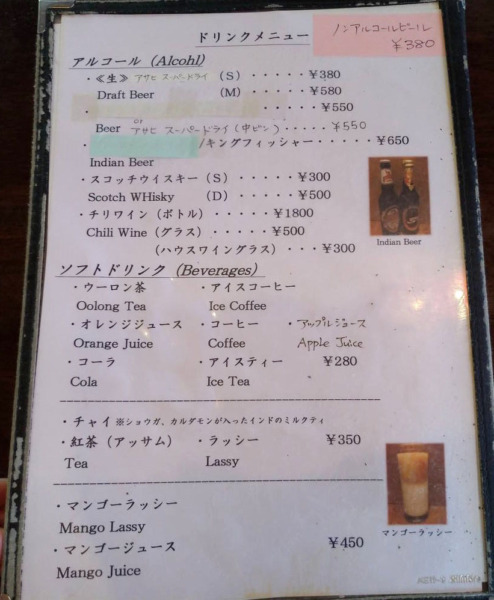 ドリンクメニュー
ノンアルコールビール
¥380
アルコール (Alcohl)
・≪生≫ アサヒ スーパードライ (S) ・・・・・¥380
Draft Beer (M) ・・・・・¥580
・ ・・・・・¥550
Beer or アサヒ スーパードライ(中ビン)・・・・・¥550
・ /キングフィッシャー・・・・¥650
Indian Beer
・スコッチウイスキー(S)・・・・¥300
Scotch WHisky (D)・・・・¥500
・チリワイン(ボトル)・・・・・¥1800
Chili Wine(グラス)・・・・・¥500
(ハウスワイングラス)・・・¥300
Indian Beer
ソフトドリンク (Beverages)
・ウーロン茶 ・アイスコーヒー
Oolong Tea Ice Coffee
・オレンジジュース ・コーヒー ・アップルジュース
Orange Juice Coffee Apple Juice
・コーラ ・アイスティー ¥280
Cola Ice Tea
・チャイ ※ショウガ、カルダモンが入ったインドのミルクティ
・紅茶(アッサム) ・ラッシー ¥350
Tea Lassy
・マンゴーラッシー
Mango Lassy
マンゴーラッシー
・マンゴージュース ¥450
Mango Juice